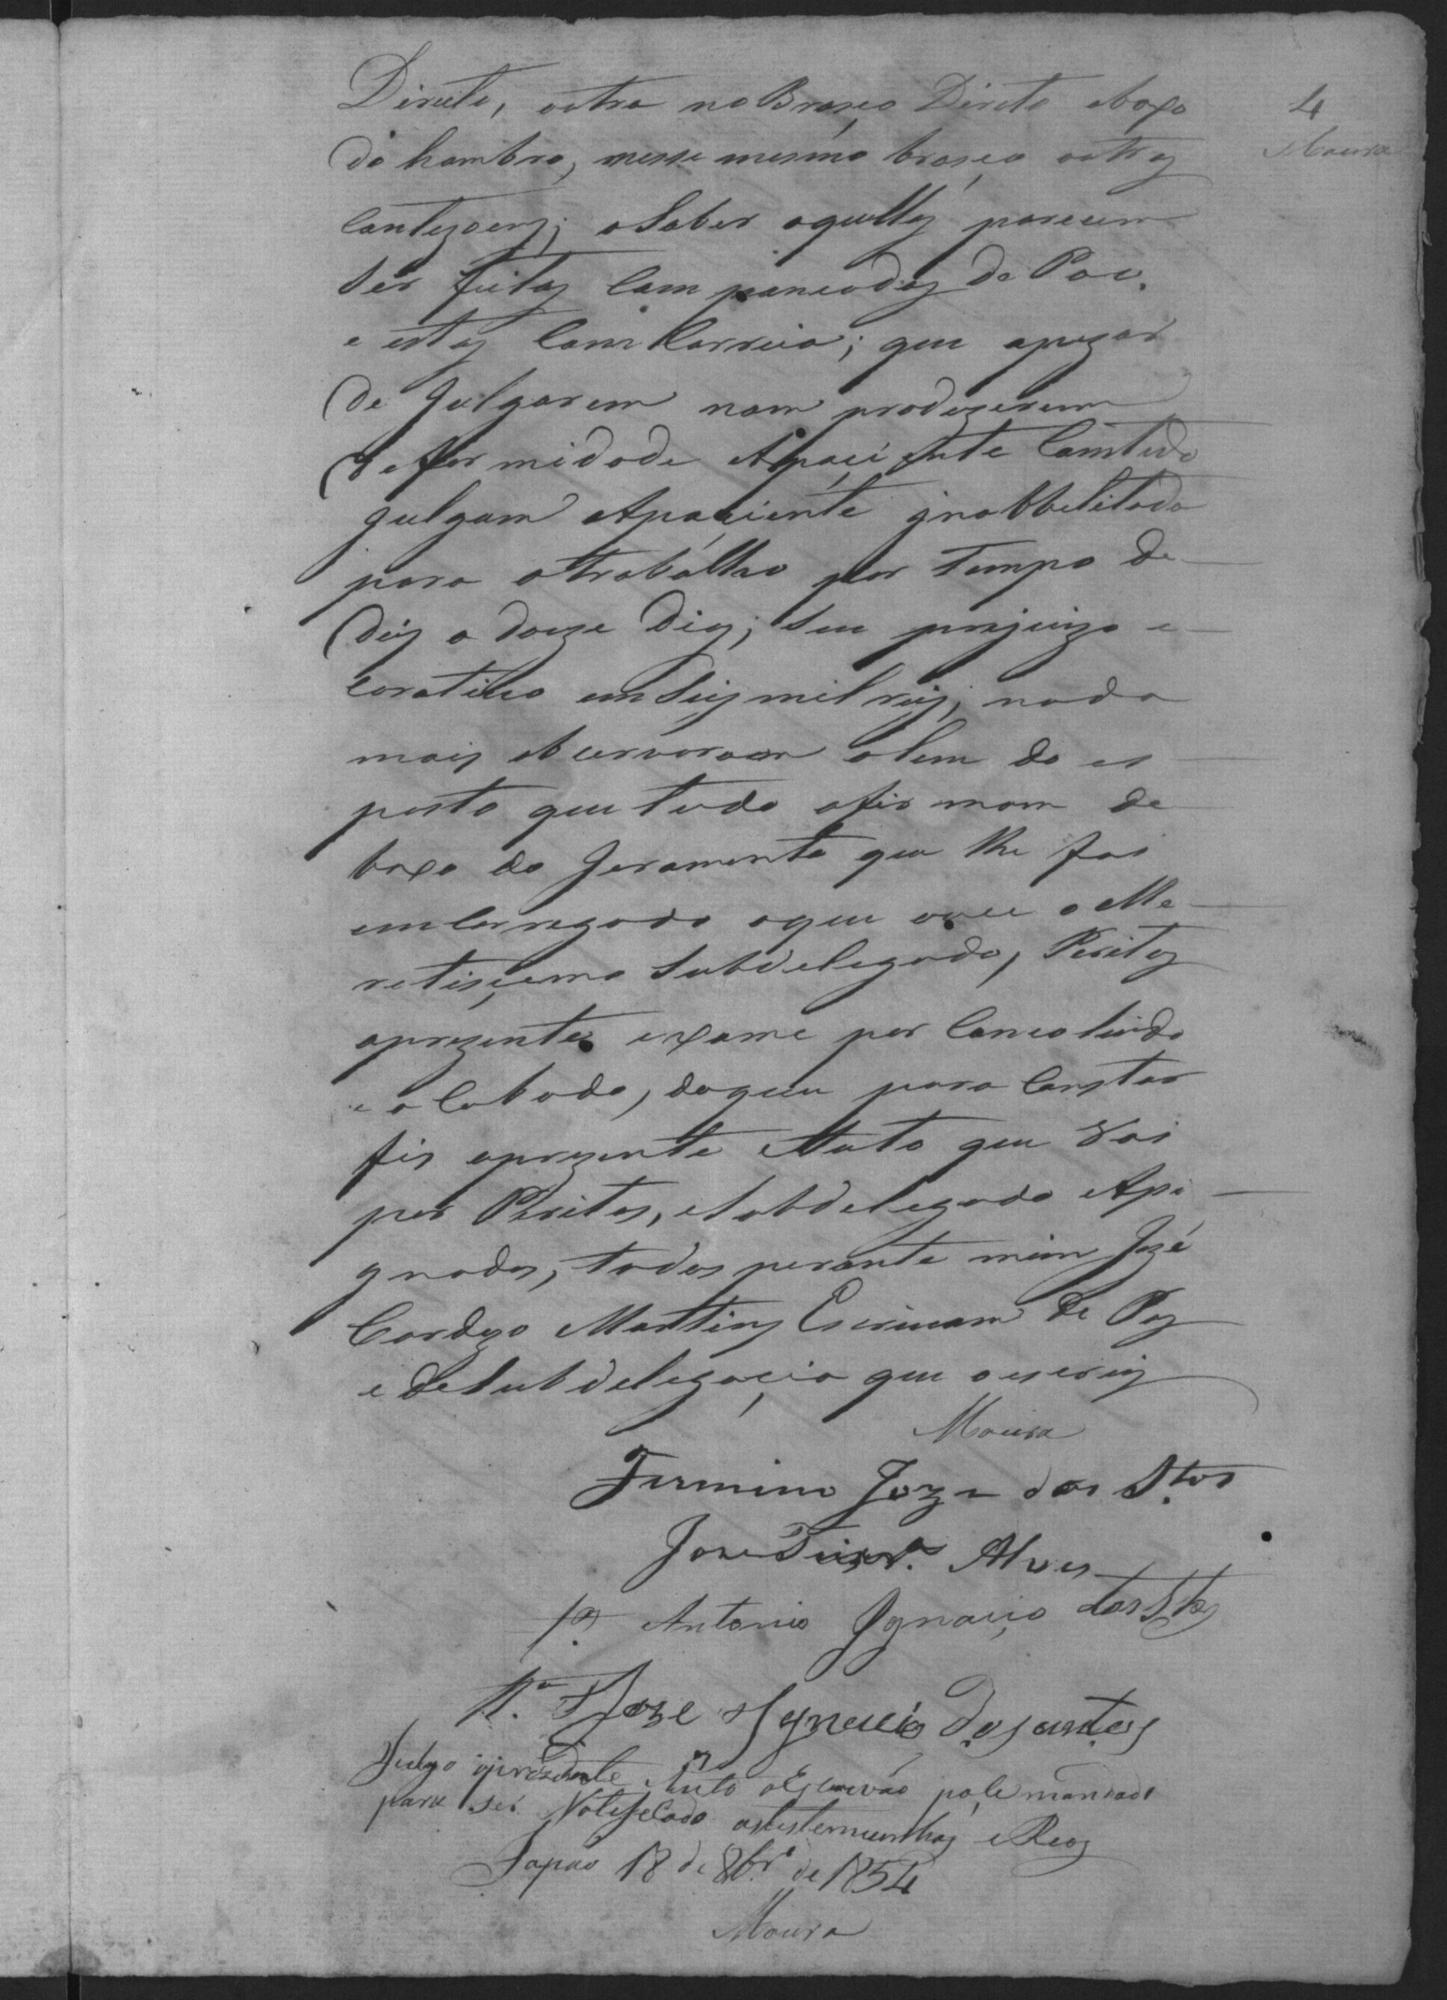 4
Moura
Direito, outra no Braso Direto abaxo
do hombro, nesse mesmo braso outras
Contuzoens; a Saber aquellas parecem
Ser feitas Com pancadas de Pao.
e estas Com Correia; que apezar
de Julgarem nam produzerem
deformidade Apaciente Comtudo
julgam Apaciente jnabbelitada
para o trabalho por Tempo de
deis a doze Dias; Seu prejuizo e
corativo em Seis mil reis; nada
mais obcervaram alem do es
posto que tudo afirmam de
baxo do Juramento que lhe foi
emCarregado o que ouve o Me
retiscemo Subdelegado, Peritos
aprezente exame por Concoluido
e aCabado, do que para Constar
fis aprezente Auto que vai
por Peritos, e Subdelegado Asi
gnados, todos perante mim Jozé
Cardozo Martins Escrivam de Paz
e de Subdelegacia que o escrevy
Moura
Firmino Joze dos S.tos
Jose Alves
Antonio Ignacio dos Stos
Joze Ignacio Dosantos
Julgo aprezente Auto o Escrivão pase mandado
para ser Notefecado as testemunhas e Reos
Sapão 18 de 8br.º de 1854
Moura